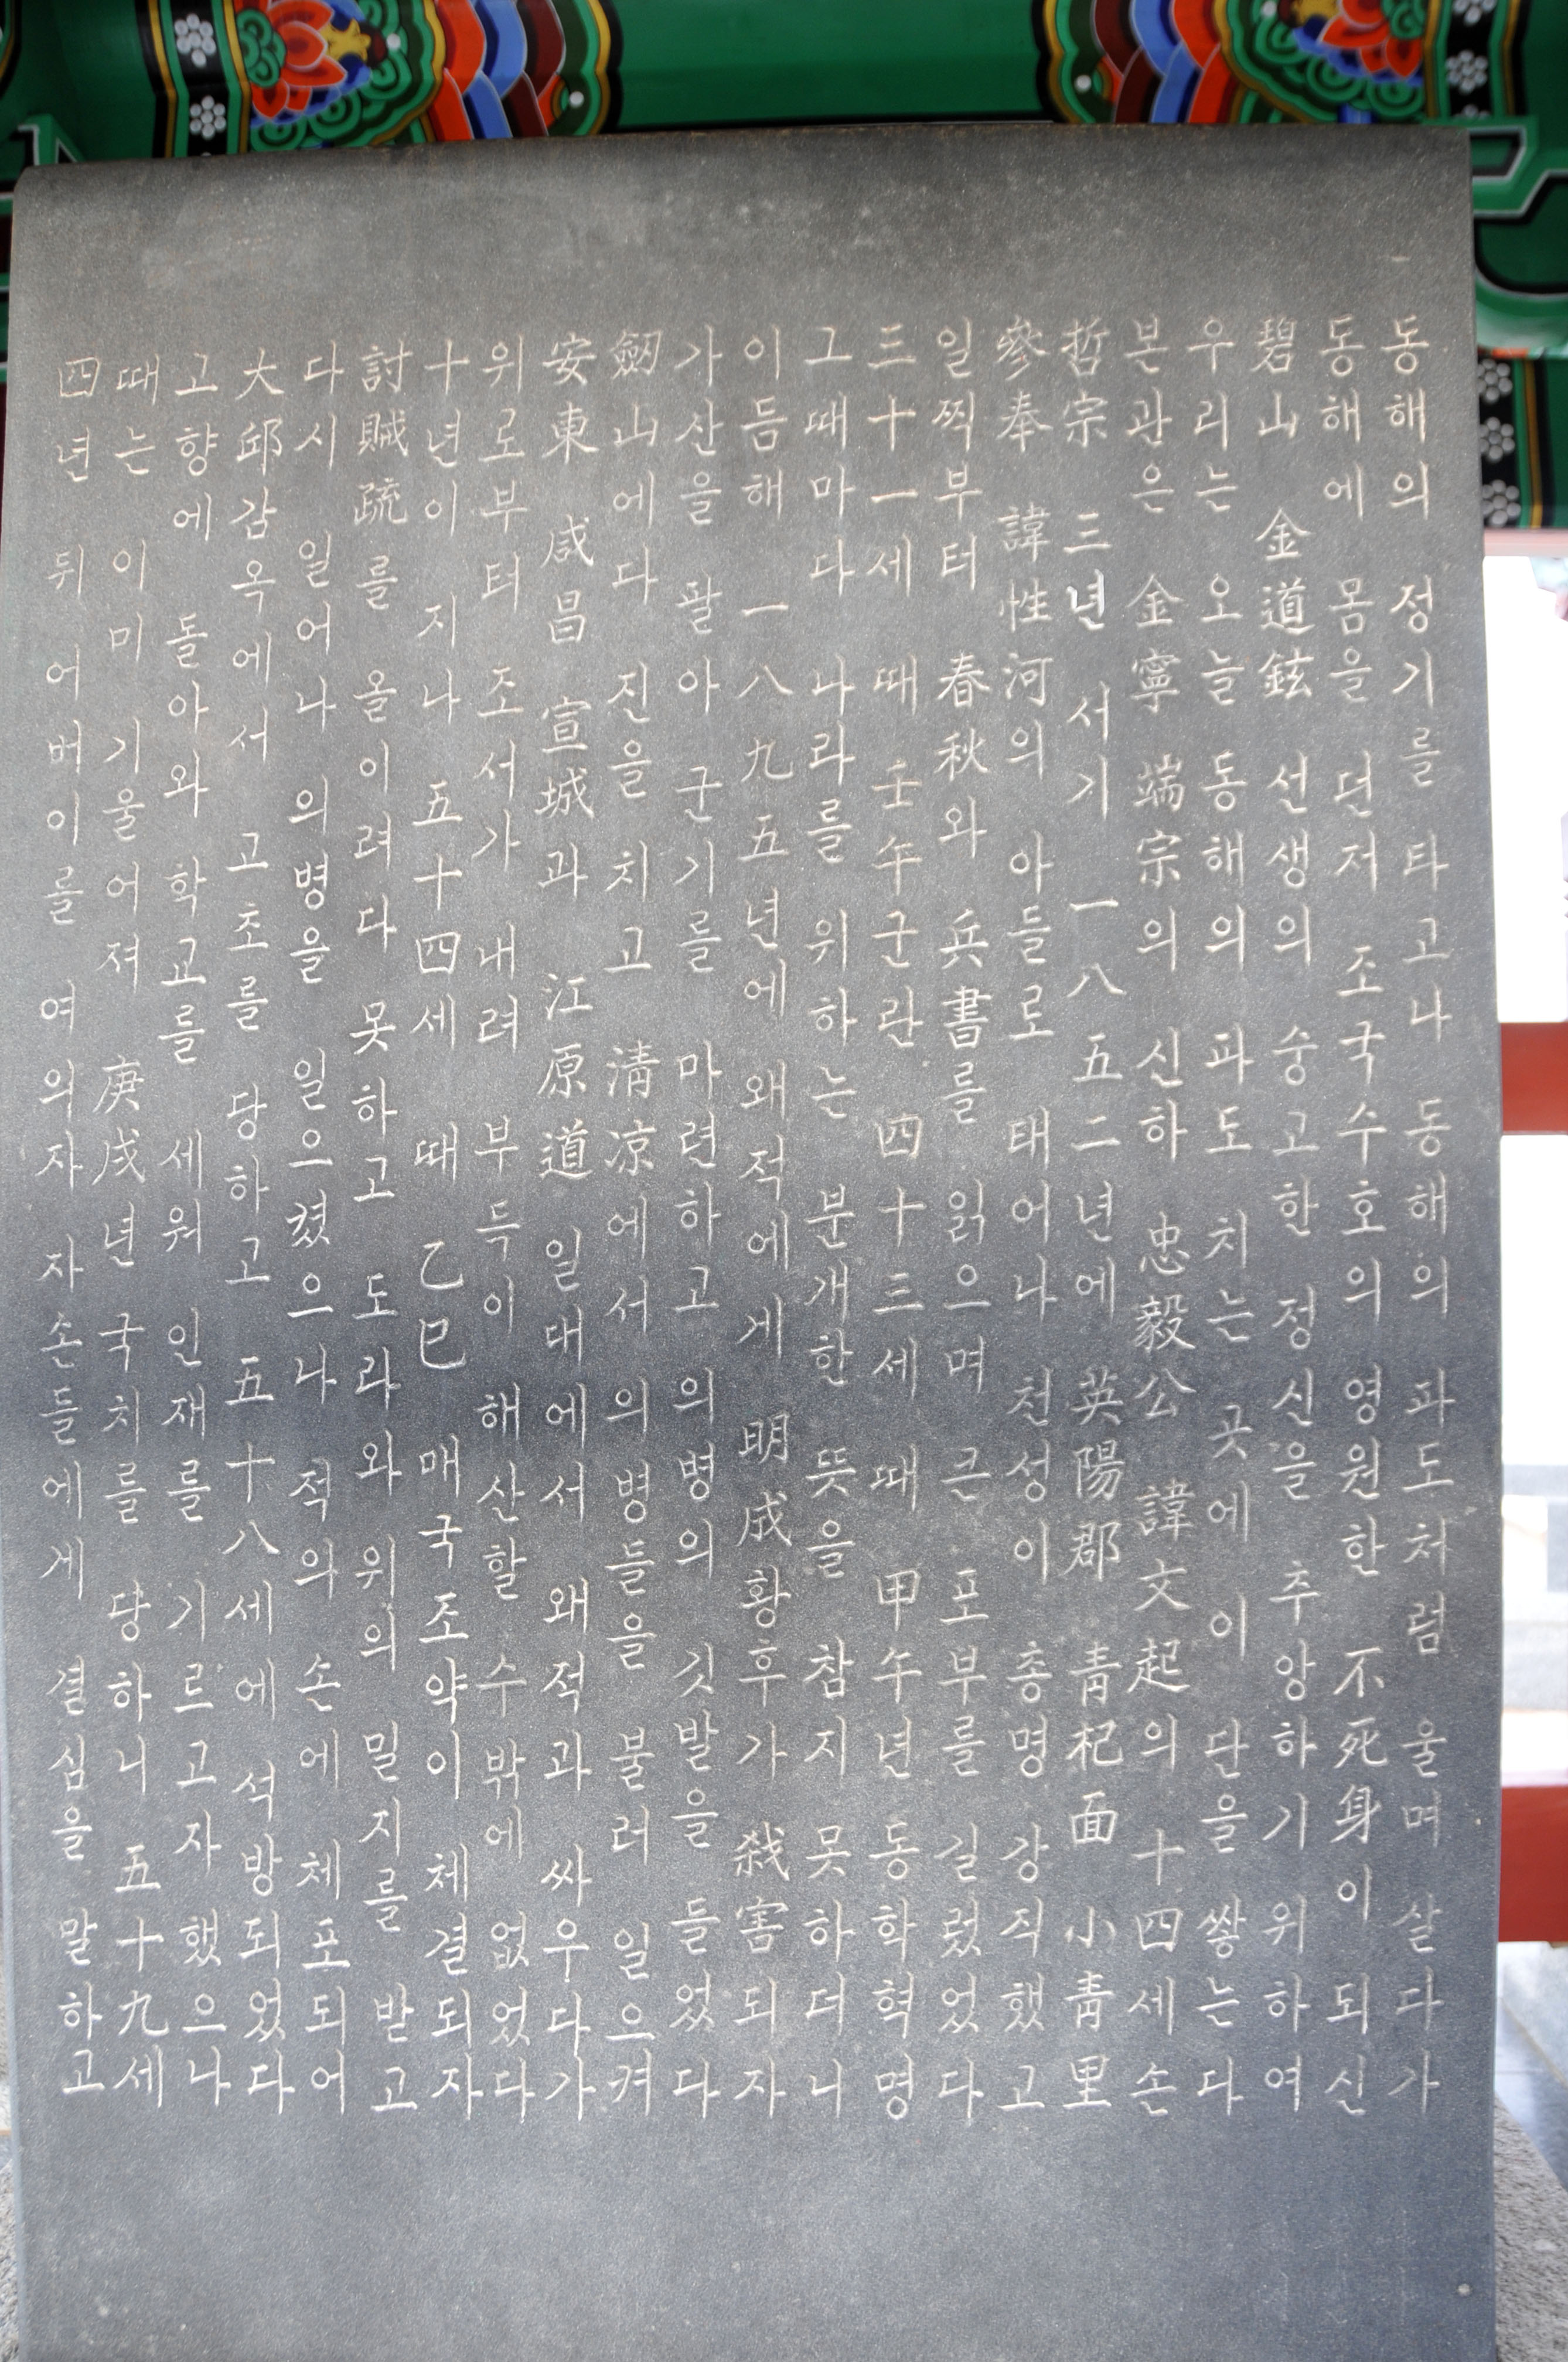 동해의 정기를 타고나 동해의 파도처럼 울며 살다가
동해에 몸을 던저 조국수호의 영원한 不死身이 되신
碧山 金道鉉 선생의 숭고한 정신을 추앙하기 위하여
우리는 오늘 동해의 파도 치는 곳에 이 단을 쌓는다
본관은 金寧 端宗의 신하 忠毅公 諱文起의 十四세손
哲宗 三년 서기 一八五二년에 英陽郡 靑杞面 小靑里
參奉 諱性河의 아들로 태어나 천성이 총명 강직했고
일찍부터 春秋와 兵書를 읽으며 큰 포부를 길렀었다
三十一세 때 壬午군란 四十三세 때 甲午년 동학혁명
그때마다 나라를 위하는 분개한 뜻을 참지 못하더니
이듬해 一八九五년에 왜적에게 明成황후가 弑害되자
가산을 팔아 군기를 마련하고 의병의 깃발을 들었다
劒山에다 진을 치고 淸凉에서 의병들을 불러 일으켜
安東 咸昌 宣城과 江原道 일대에서 왜적과 싸우다가
위로부터 조서가 내려 부득이 해산할 수밖에 없었다
十년이 지나 五十四세 때 乙巳 매국조약이 체결되자
討賊疏를 올이려다 못하고 도라와 위의 밀지를 받고
다시 일어나 의병을 일으켰으나 적의 손에 체포되어
大邱감옥에서 고초를 당하고 五十八세에 석방되었다
고향에 돌아와 학교를 세워 인재를 기르고자 했으나
때는 이미 기울어져 庚戌년 국치를 당하니 五十九세
四년 뒤 어버이를 여의자 자손들에게 결심을 말하고